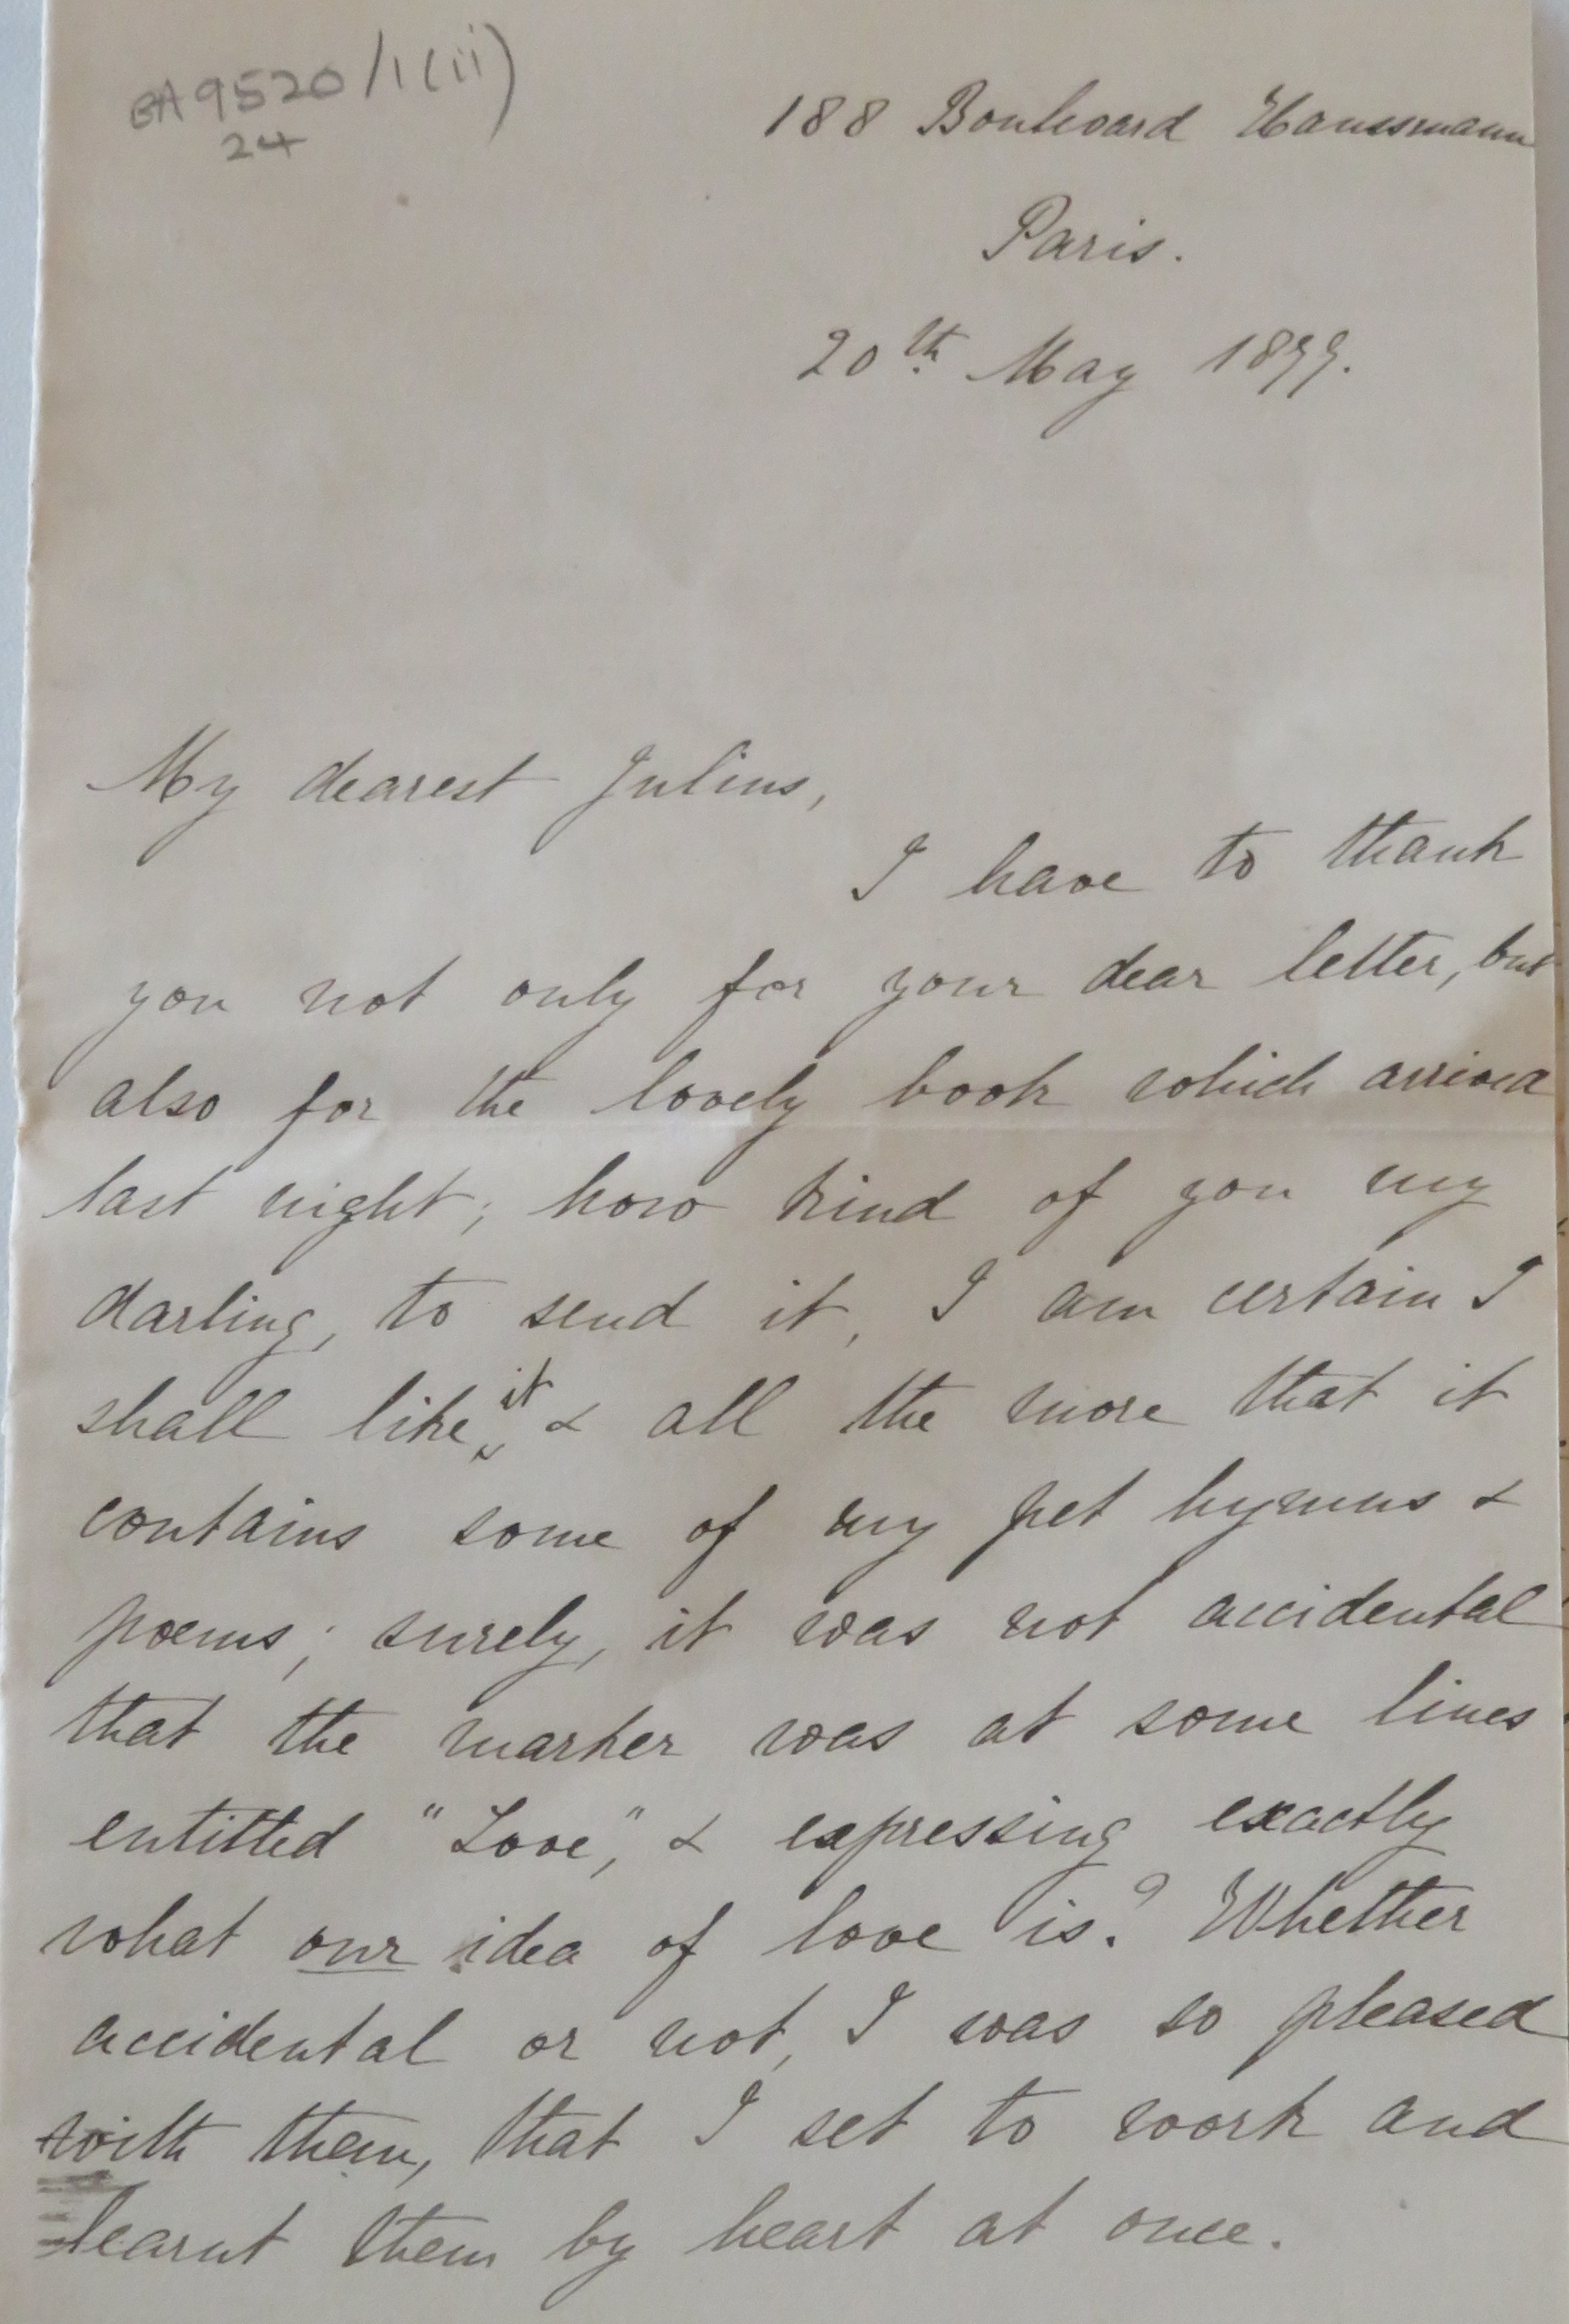 BA9520/1(ii)
24
188 Boulevard Haussmann
Paris.
20th May 1899.
My dearest Julius,
I have to thank
you not only for your dear letter, but
also for the lovely book which arrived
last night; how kind of you my
darling, to send it, I am certain I
shall like, it & all the more that it
contains some of my pet hymns &
poems; surely, it was not accidental
that the marker was at some lines
entitled "Love," & expressing exactly
what our idea of love is? Whether
accidental or not, I was so pleased
with them, that I set to work and
learnt them by heart at once.